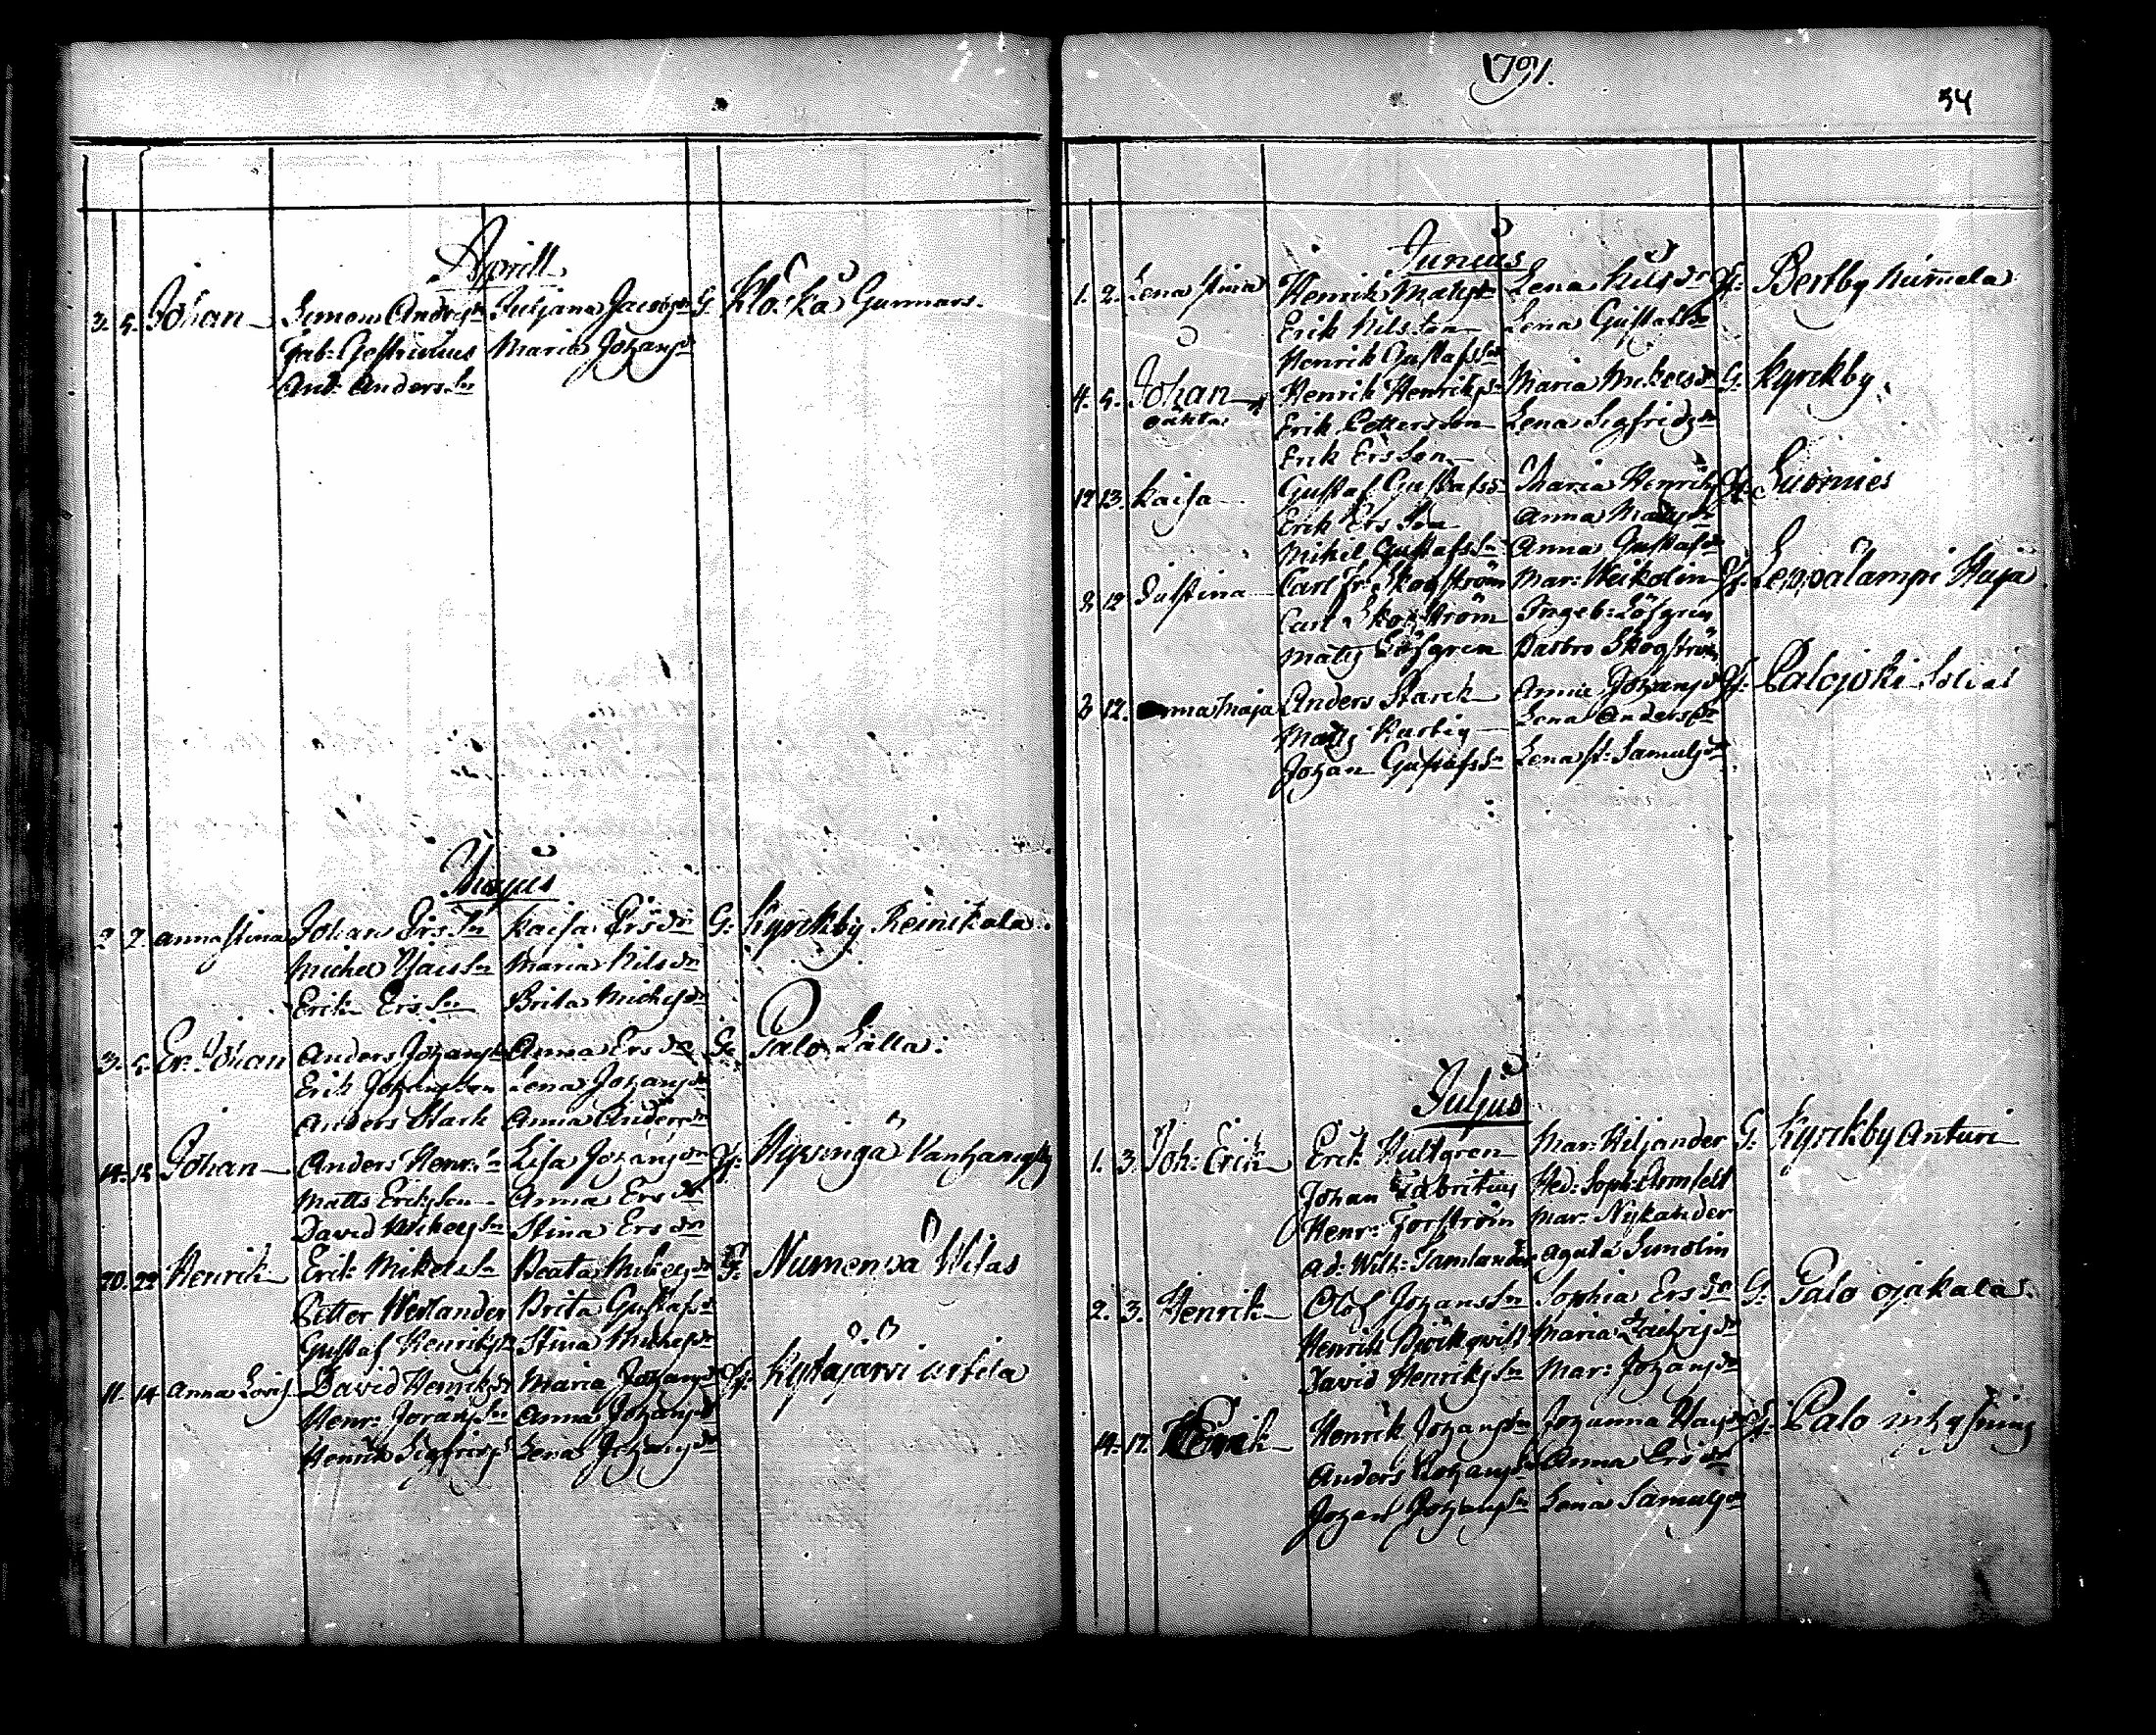 Aprill
3. 5. Johan Simon Anders Sn Juljana Jacobs dr G: Kloskå Gunnars.
Gab: Gestrinius Maria Johans dr
Ant: Anders Sn
Majus
2. 2. Anna Stina Johan Ers Sn Kaisa Ers dr G: Kyrckby Reinikala.
Michel Sn Maria Nils dr
Erik Ers Sn Brita Michels dr
3. 5. Er. Johan Anders Johans Sn Anna Ers dr G: Palo Lålla.
Erik Johans Son Lena Johans dr
Anders Stark Anna Anders dr
14. 15. Johan Anders Henr: Sn Lisa Johans dr Hyvingä Vanhamyly
Matts Ericks Son Anna Ers dr
David Mikels Sn Stina Ers dr
20. 22. Henrik Erik Mikels Sn Beata Mikels dr G: Numenpä Wilas
Petter Westlander Brita Gustafs dr
Gustaf Henriks Sn Stina Michels dr
11. 14. Anna Lovis David Henriks Sn Maria Johans dr Kytäjärvi
Henr: Jorans Son Anna Johans dr
Henrik Sigfrids S Lena Johans dr
1791.
54
Junius
1. 2. Lena Stina Henrik Mats Sn Lena Nils dr Bertby Nummela
Erik Nils Son Lena Gustafs dr
Henrik Gustafs Son
4. 5. Johan Henrik Henriks Sn Maria Mikels dr G: Kyrckby.
oäkta Erik Petters Son Lena Sigfrids dr
Erik Ers Son
12 13. Kaisa Gustaf Gustafs Sn Maria Henriks Suomies
Erik Ers Son Anna Mats dr
Mikel Gustafs Sn Anna Gustafs dr
8 12 Justina Carl Fr: Skogström Mar: Heikolin Leppälampi
Carl Skogström Ingeb: Löfgren
Mats Löfgren Barbro Skogström
2 12. Anna Maja Anders Starck Anna Johans dr Palojoki
Mats Lena Anders dr
Johan Gustafs Sn Lena St: Samuels dr
Juljus
1. 3. Joh: Erik Erik Hultgren Mar: Kiljander G: Kyrckby Anturi
Johan Fabritius Hed: Soph: Armfelt
Henr: Forström Mar: Nykander
Ad: Wilh: Tamlander Agata Sunolin
2. 3. Henrik Olof Johans Son Sophia Ers dr G: Palo Ojakala.
Henrik Björkqvist Maria dr
David Henriks Sn Mar: Johans dr
14. 17. Erik Henrik Johans Sn Johanna Palo inhysning
Anders Johans Sn Anna Ers dr
Johan Johans Sn Lena Samuels dr